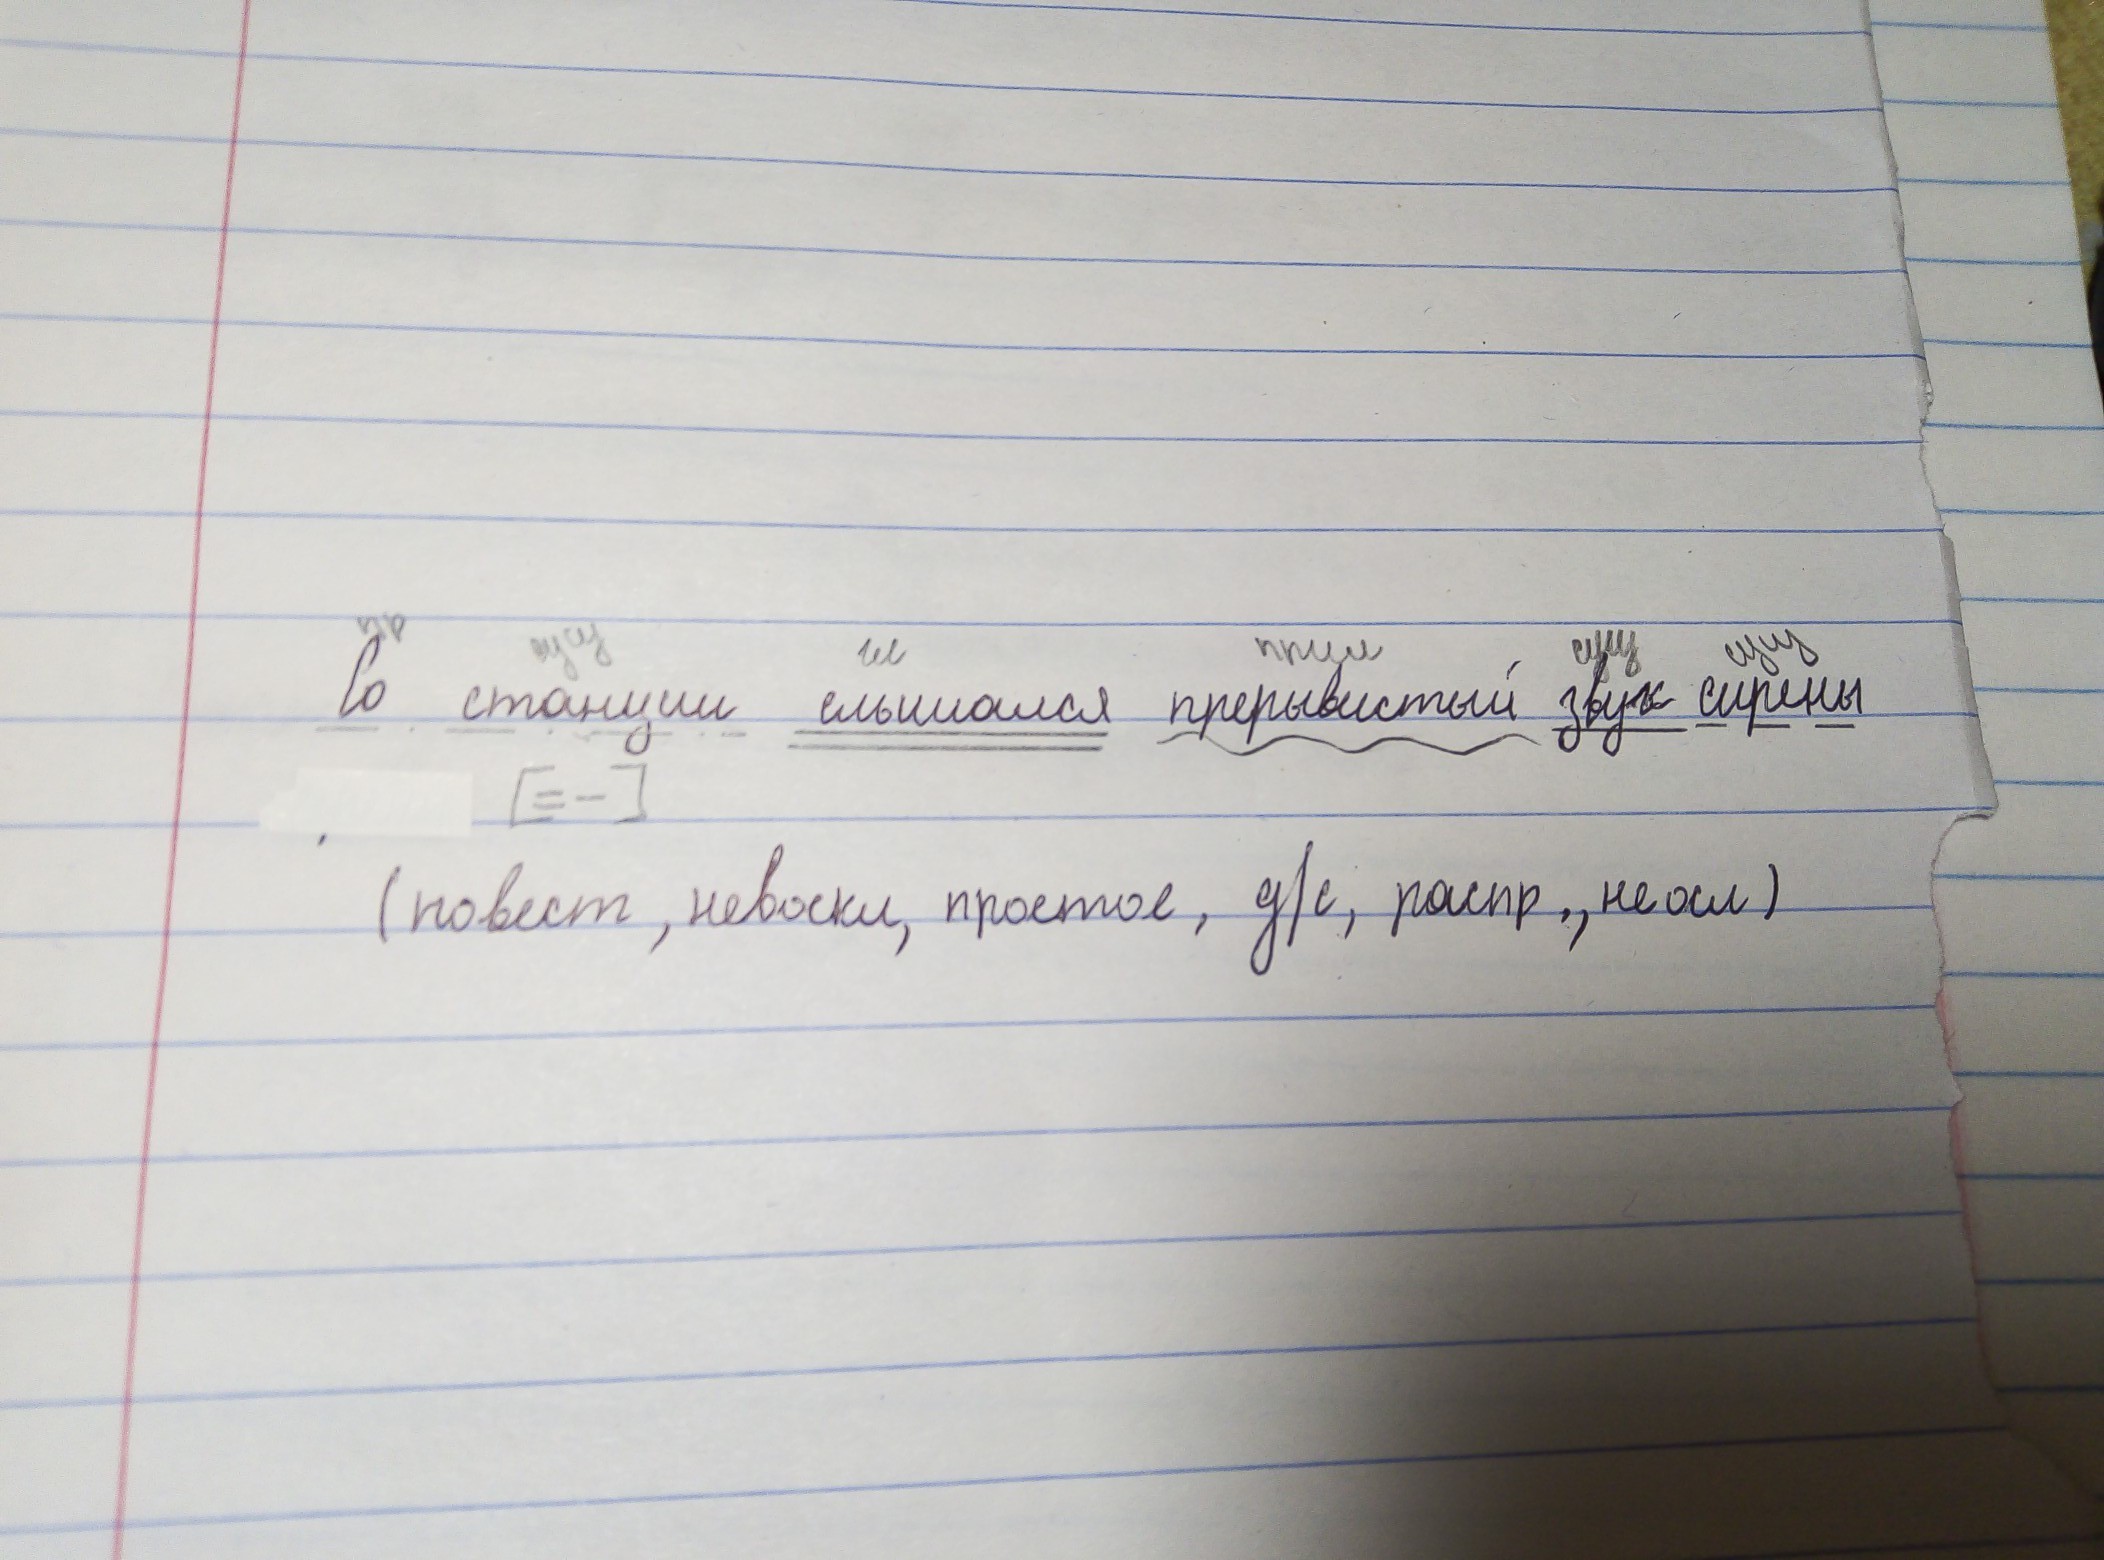 пр сущ гл прил сущ сущ
Со станции слышался прерывистый звук сирены
[= -]
(повест, невоскл, простое, д/с, распр., неосл)